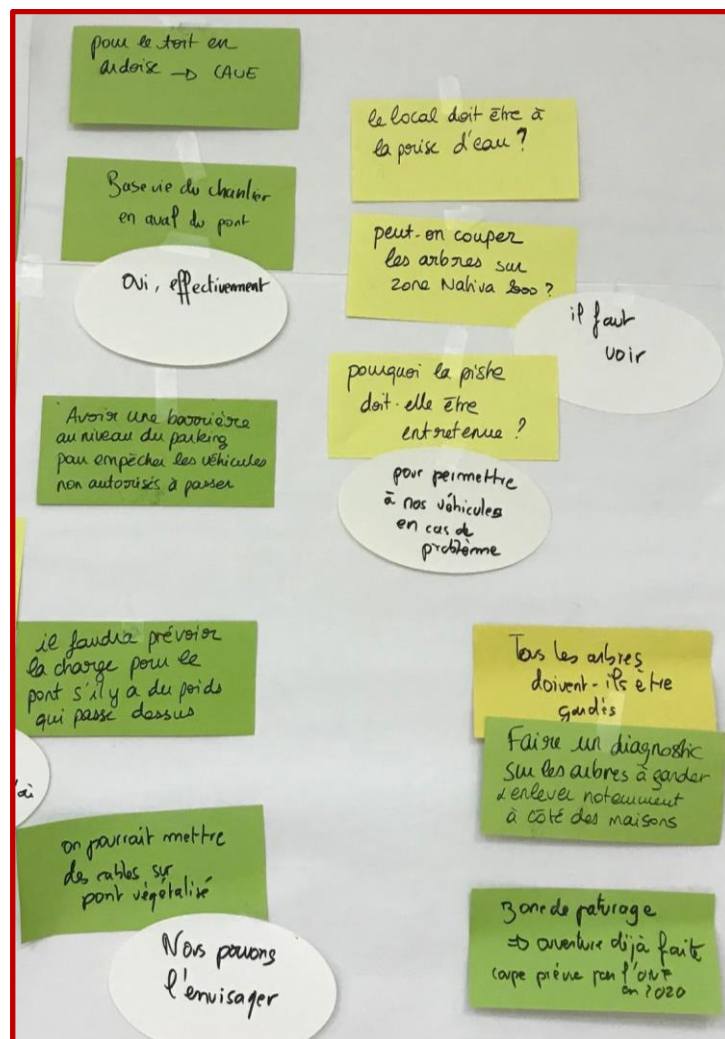 pour le toit en
ardoise → CAUE
Base vie du chantier
en aval du pont
Oui, effectivement
Avoir une barrière
au niveau du parking
pour empêcher les véhicules
non autorisés à passer
il faudra prévoir
la charge pour le
pont s'il y a du poids
qui passe dessus
on pourrait mettre
des cables sur
pont végétalisé
Nous pouvons
l'envisager
le local doit être à
la prise d'eau ?
peut-on couper
les arbres sur
zone Natura 2000 ?
il faut
voir
pourquoi la piste
doit-elle être
entretenue ?
pour permettre
à nos véhicules
en cas de
problème
Tous les arbres
doivent-ils être
gardés
Faire un diagnostic
sur les arbres à garder
à enlever notamment
à côté des maisons
Zone de paturage
⇒ ouverture déjà faite
coupe prévue par l'ONF
en 2020